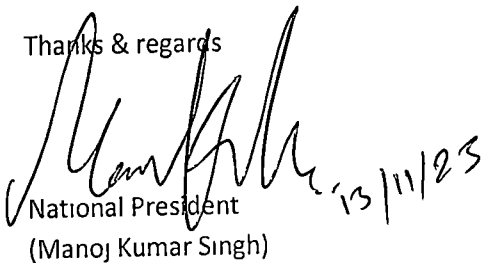 Thanks & regards
13/11/23
National President
(Manoj Kumar Singh)